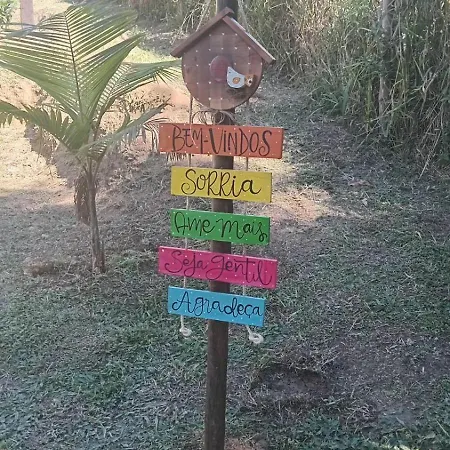 BEM-VINDOS
SORRIA
Ame Mais
Seja Gentil
Agradeça